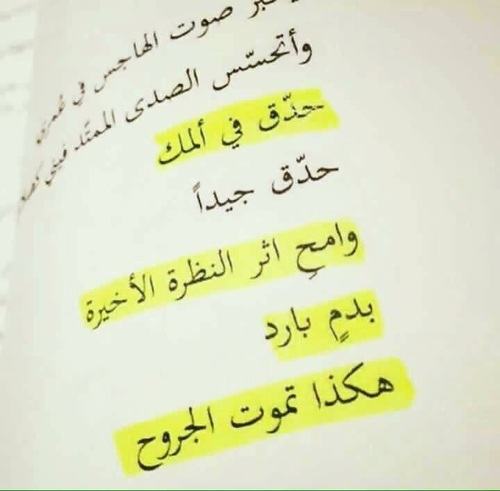 صوت الهاجس في
وأتحسّس الصدى الممتد فيني
حدّق في ألمك
حدّق جيداً
وامحِ اثر النظرة الأخيرة
بدمٍ بارد
هكذا تموت الجروح